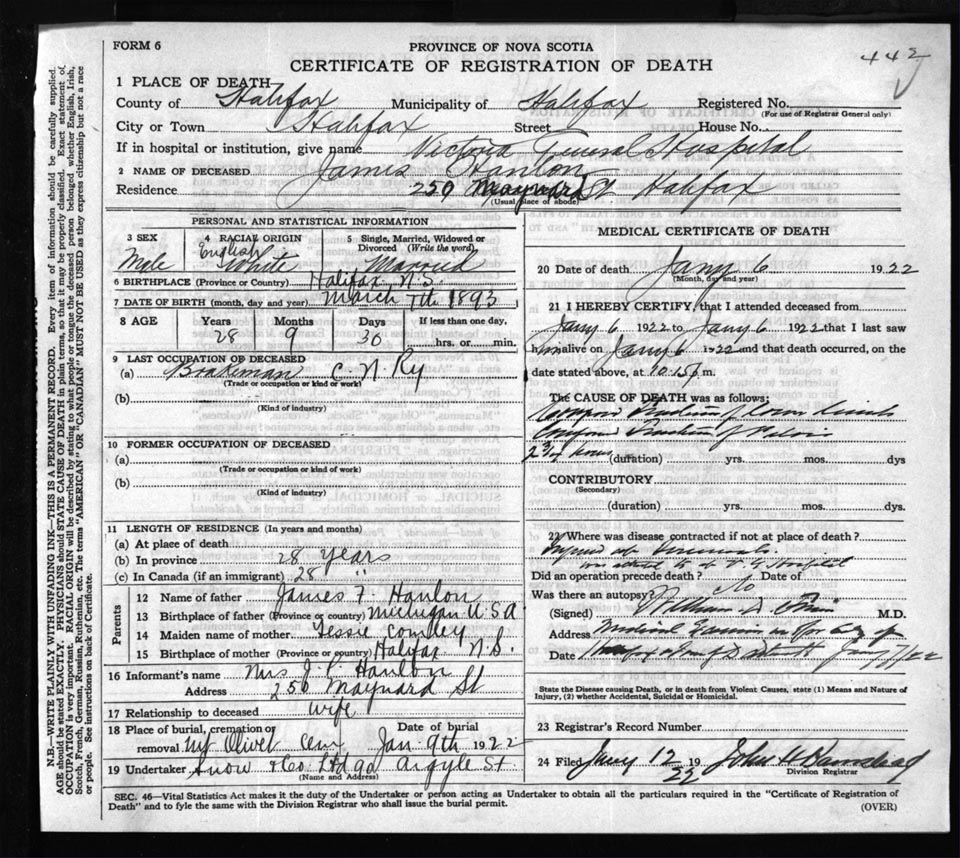 FORM 6
PROVINCE OF NOVA SCOTIA
442
CERTIFICATE OF REGISTRATION OF DEATH
1 PLACE OF DEATH
County of Halifax Municipality of Halifax Registered No.
(For use of Registrar General only)
City or Town Halifax Street House No.
If in hospital or institution, give name Victoria General Hospital
2 NAME OF DECEASED James Hanlon
Residence 250 Maynard St Halifax
(Usual place of abode)
PERSONAL AND STATISTICAL INFORMATION
3 SEX 4 RACIAL ORIGIN 5 Single, Married, Widowed or Divorced (Write the word)
Male English White Married
6 BIRTHPLACE (Province or Country) Halifax N.S.
7 DATE OF BIRTH (month, day and year) March 7th 1893
8 AGE Years Months Days If less than one day.
28 9 30 hrs. or min.
9 LAST OCCUPATION OF DECEASED
(a) Brakeman C. N. Ry
(Trade or occupation or kind or work)
(b)
(Kind of industry)
10 FORMER OCCUPATION OF DECEASED
(a)
(Trade or occupation or kind of work)
(b)
(Kind of industry)
11 LENGTH OF RESIDENCE (In years and months)
(a) At place of death
(b) In province 28 years
(c) In Canada (if an immigrant) 28 "
Parents
12 Name of father James F. Hanlon
13 Birthplace of father (Province or country) Michigan U.S.A
14 Maiden name of mother
15 Birthplace of mother (Province or country) Halifax N.S.
16 Informant's name Mrs J. Hanlon
Address 250 Maynard St
17 Relationship to deceased wife
18 Place of burial, cremation or removal Mt Olivet Cem Date of burial Jan 9th 1922
19 Undertaker Snow & Co. Ltd 90 Argyle St.
(Name and Address)
MEDICAL CERTIFICATE OF DEATH
20 Date of death Jany 6 1922
(Month, day and year)
21 I HEREBY CERTIFY, that I attended deceased from
Jany 6 1922 to Jany 6 1922 that I last saw
him alive on Jany 6 1922 and that death occurred, on the
date stated above, at 10.15 m.
The CAUSE OF DEATH was as follows:
Compound Fracture of
Fracture of Pelvis
2 3/4 hours (duration) yrs. mos. dys
CONTRIBUTORY
(Secondary)
(duration) yrs. mos. dys.
22 Where was disease contracted if not at place of death?
Injured at
Hospital
Did an operation precede death? Date of
Was there an autopsy? No
(Signed) William D. M.D.
Address Medical Examiner for City of
Date Halifax Jany 7/22
State the Disease causing Death, or in death from Violent Causes, state (1) Means and Nature of
Injury, (2) whether Accidental, Suicidal or Homicidal.
23 Registrar's Record Number
24 Filed Jany 12 19 22 John H
Division Registrar
SEC. 46—Vital Statistics Act makes it the duty of the Undertaker or person acting as Undertaker to obtain all the particulars required in the "Certificate of Registration of
Death" and to fyle the same with the Division Registrar who shall issue the burial permit.
(OVER)
N.B.—WRITE PLAINLY WITH UNFADING INK—THIS IS A PERMANENT RECORD. Every item of information should be carefully supplied.
AGE should be stated EXACTLY. PHYSICIANS should STATE CAUSE OF DEATH in plain terms, so that it may be properly classified. Exact statement of
OCCUPATION is very important. RACIAL ORIGIN will be described by stating to what people or tongue the deceased person belonged whether English, Irish,
Scotch, French, German, Russian, Ruthenian, etc. The terms "AMERICAN" or "CANADIAN" MUST NOT BE USED as they express citizenship but not a race
or people. See instructions on back of Certificate.